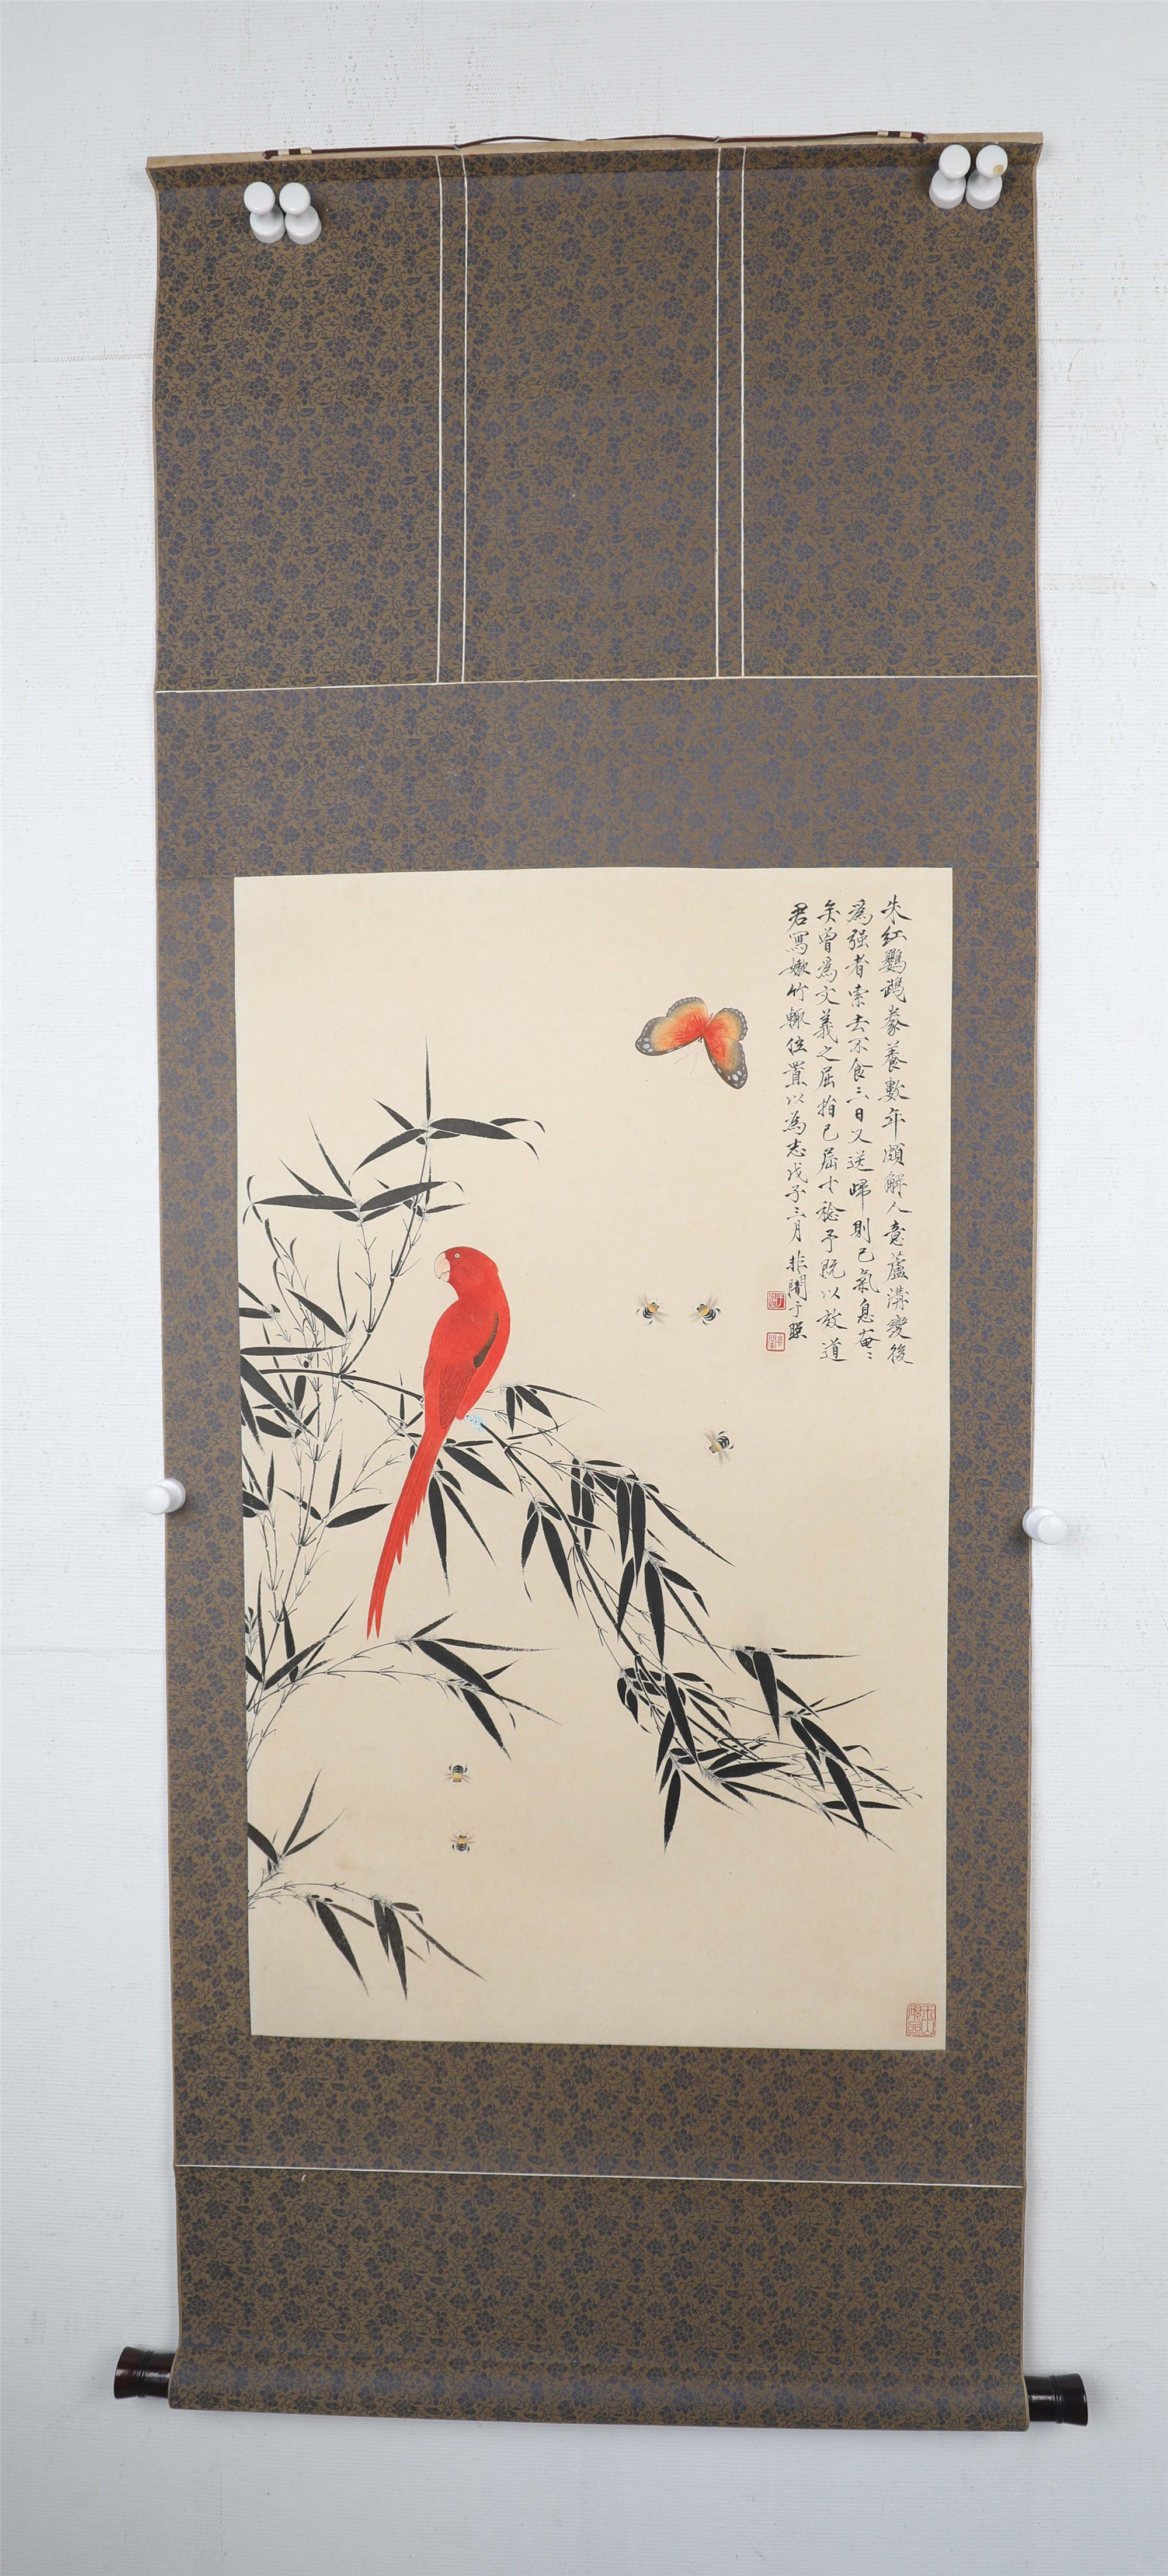 朱紅鸚鵡豢養數年頗解人意蘆溝變後
為强者索去不食三日又送歸則已氣息奄〻
矣曾為文義之屈指已屆十稔予既以放道
君寫嫩竹輒位置以為志戊子三月 非闇于照